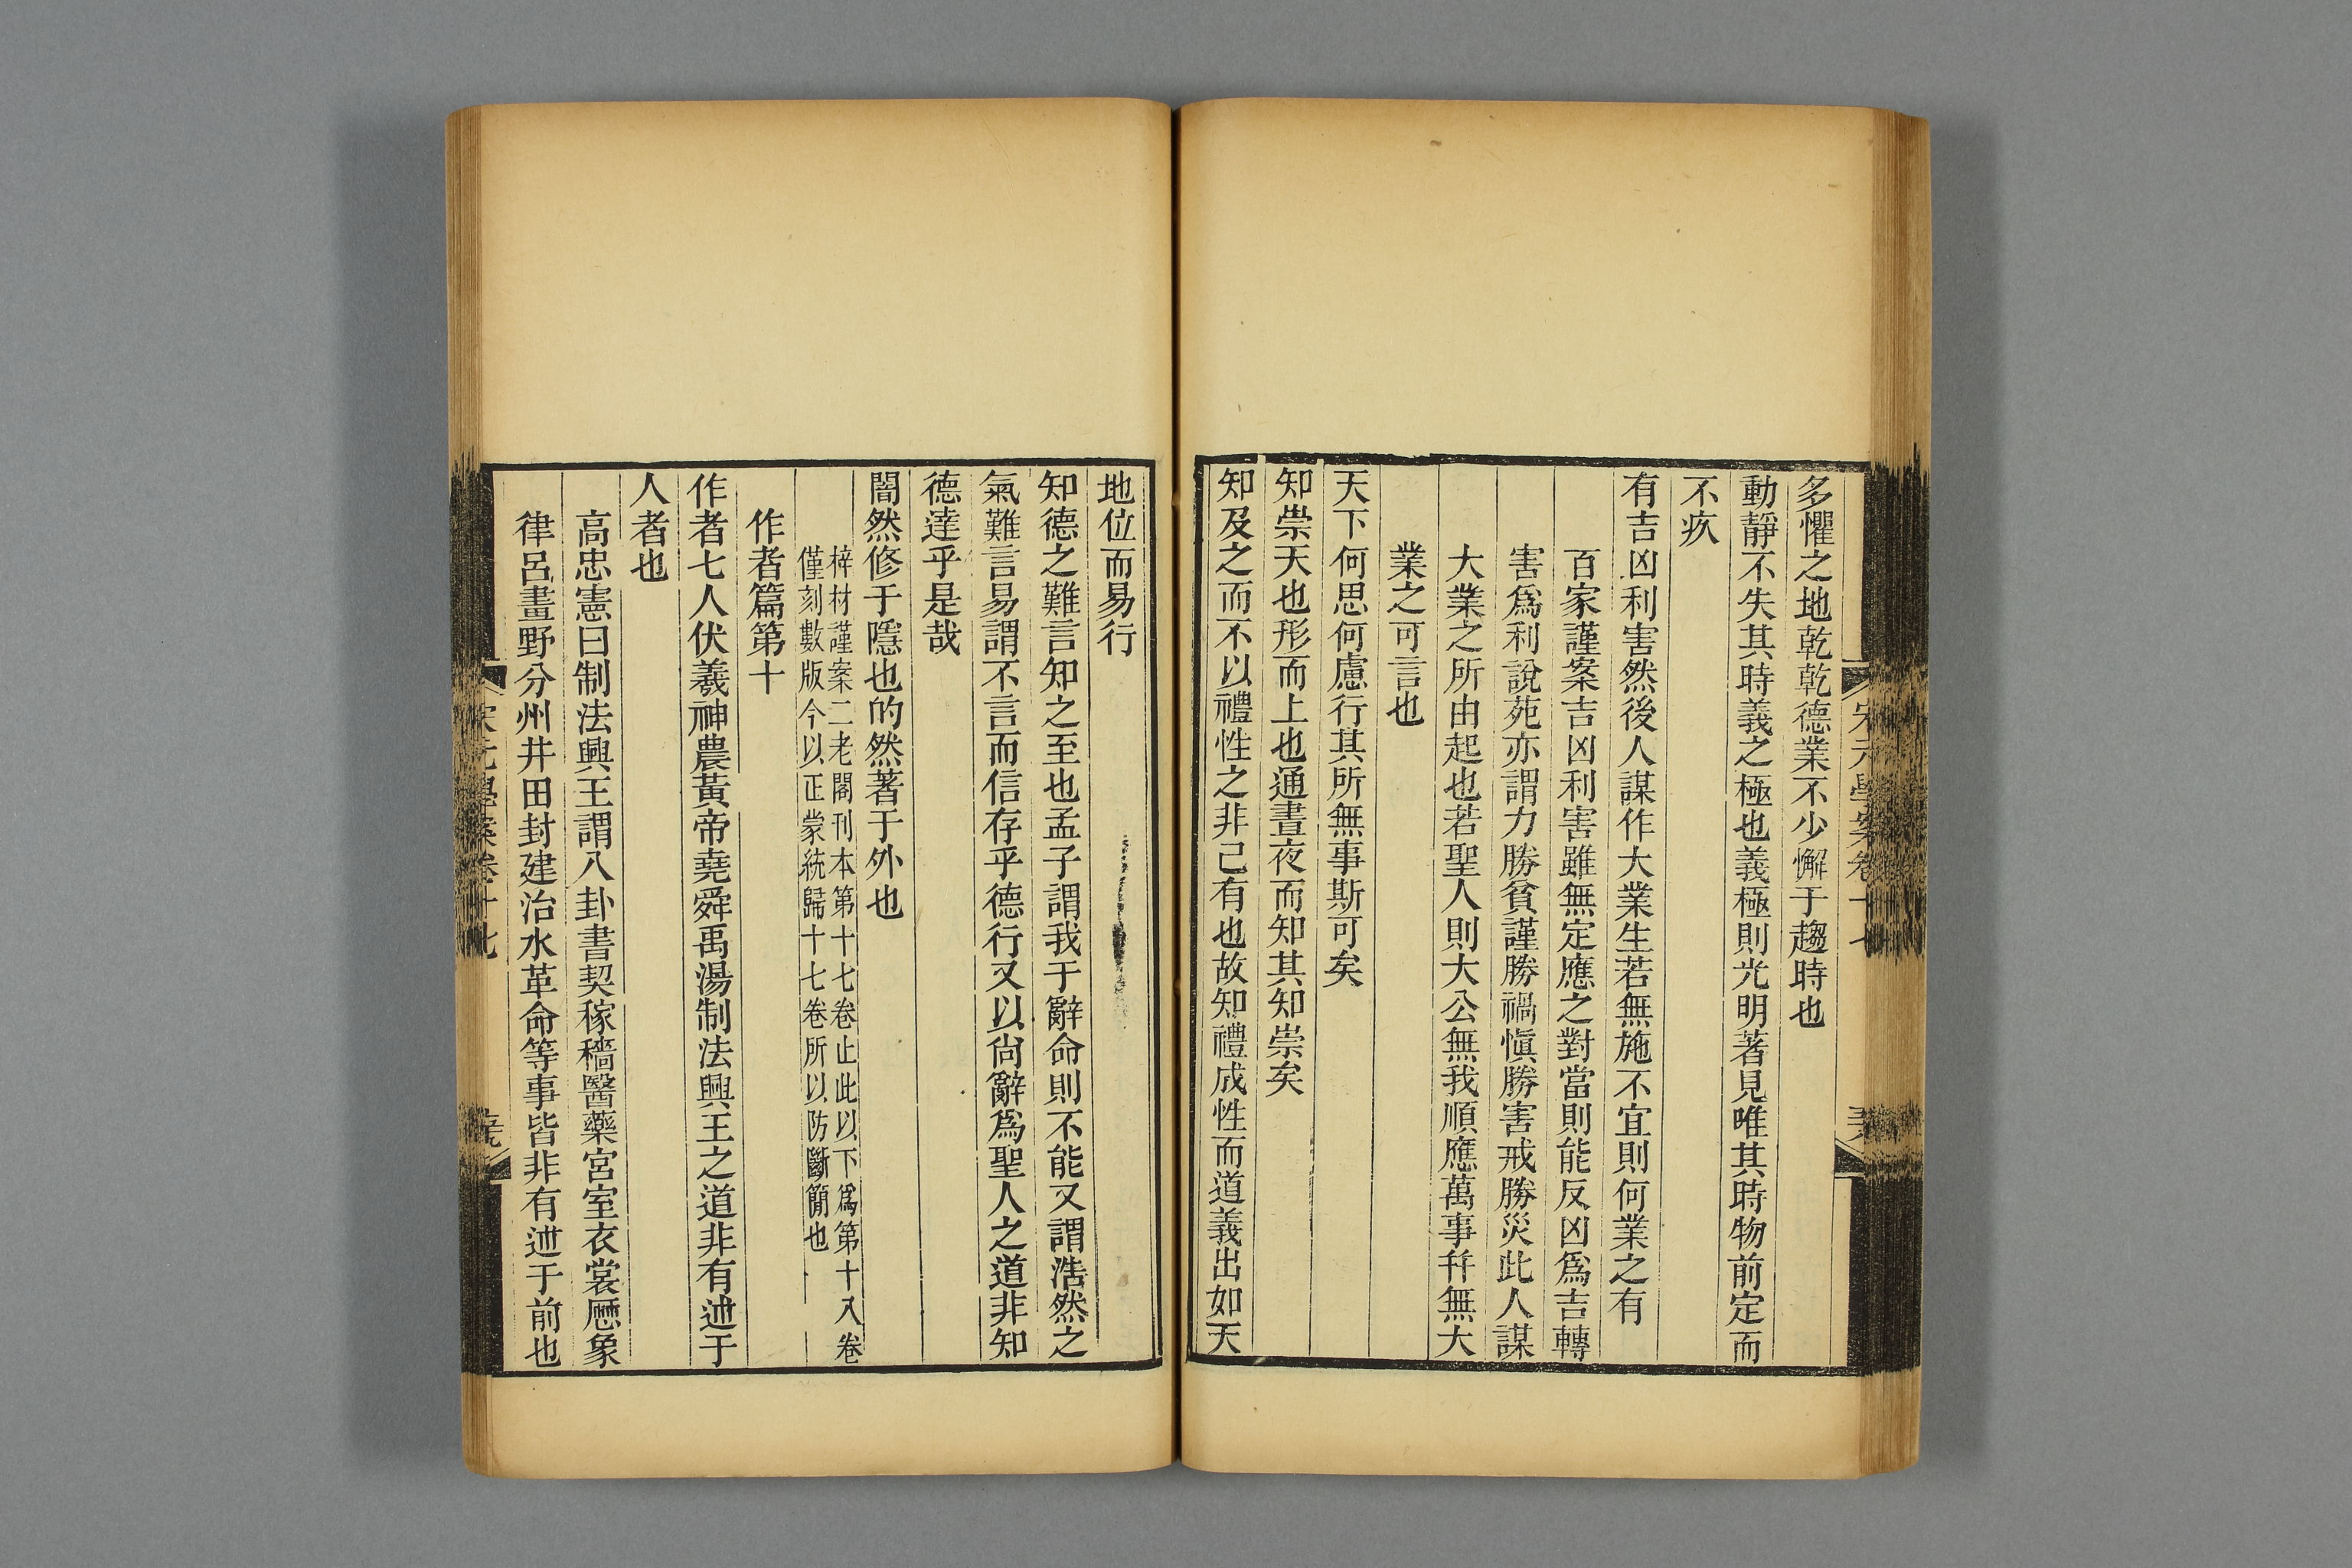 多懼之地乾乾德業不少懈于趨時也
動靜不失其時義之極也義極則光明著見唯其時物前定而
不疚
有吉凶利害然後人謀作大業生若無施不宜則何業之有
百家謹案吉凶利害雖無定應之對當則能反凶爲吉轉
害爲利說苑亦謂力勝貧謹勝禍愼勝害戒勝災此人謀
大業之所由起也若聖人則大公無我順應萬事幷無大
業之可言也
天下何思何慮行其所無事斯可矣
知崇天也形而上也通晝夜而知其知崇矣
知及之而不以禮性之非己有也故知禮成性而道義出如天
地位而易行
知德之難言知之至也孟子謂我于辭命則不能又謂浩然之
氣難言易謂不言而信存乎德行又以尙辭爲聖人之道非知
德達乎是哉
闇然修于隱也的然著于外也
梓材謹案二老閣刊本第十七卷止此以下爲第十八卷
僅刻數版今以正蒙統歸十七卷所以防斷簡也
作者篇第十
作者七人伏羲神農黃帝堯舜禹湯制法興王之道非有述于
人者也
高忠憲曰制法興王謂八卦書契稼穡醫藥宮室衣裳曆象
律呂畫野分州井田封建治水革命等事皆非有述于前也
宋元學案卷十七